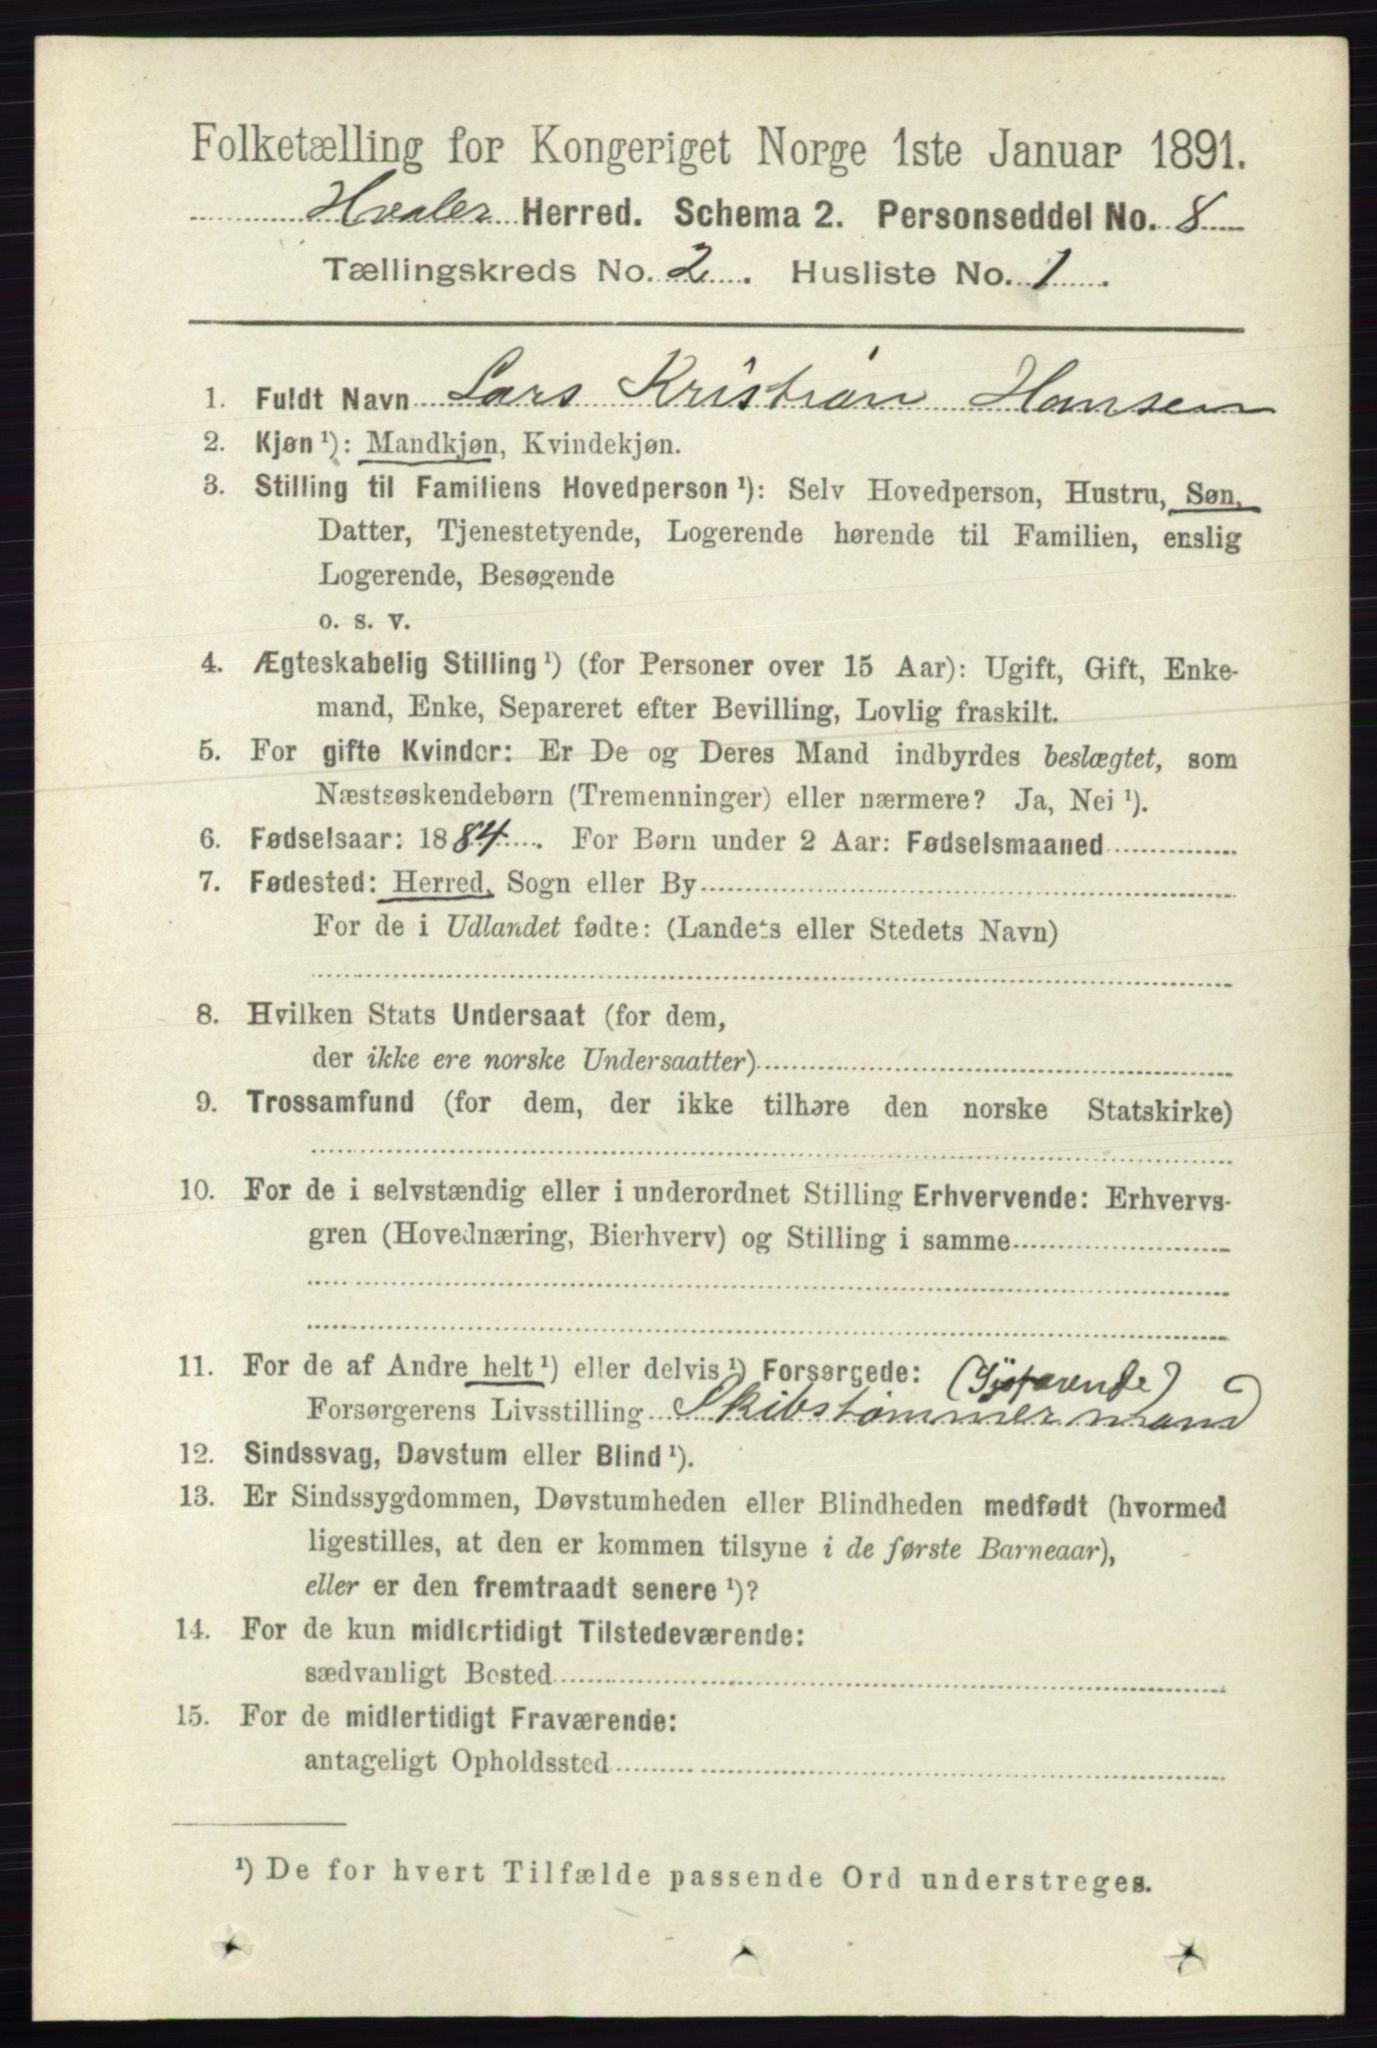 Folketælling for Kongeriget Norge 1ste Januar 1891.
Hvaler Herred. Schema 2. Personseddel No. 8
Tællingskreds No. 2. Husliste No. 1.
1. Fuldt Navn Lars Kristian Hansen
2. Kjøn ¹): Mandkjøn, Kvindekjøn.
3. Stilling til Familiens Hovedperson ¹): Selv Hovedperson, Hustru, Søn,
Datter, Tjenestetyende, Logerende hørende til Familien, enslig
Logerende, Besøgende
o. s. v.
4. Ægteskabelig Stilling ¹) (for Personer over 15 Aar): Ugift, Gift, Enke-
mand, Enke, Separeret efter Bevilling, Lovlig fraskilt.
5. For gifte Kvinder: Er De og Deres Mand indbyrdes beslægtet, som
Næstsøskendebørn (Tremenninger) eller nærmere? Ja, Nei ¹).
6. Fødselsaar: 1884. For Børn under 2 Aar: Fødselsmaaned
7. Fødested: Herred, Sogn eller By
For de i Udlandet fødte: (Landets eller Stedets Navn)
8. Hvilken Stats Undersaat (for dem,
der ikke ere norske Undersaatter)
9. Trossamfund (for dem, der ikke tilhøre den norske Statskirke)
10. For de i selvstændig eller i underordnet Stilling Erhvervende: Erhvervs-
gren (Hovednæring, Bierhverv) og Stilling i samme
11. For de af Andre helt ¹) eller delvis ¹) Forsørgede: (Sjøfarende)
Forsørgerens Livsstilling Skibstømmermand
12. Sindssvag, Døvstum eller Blind ¹).
13. Er Sindssygdommen, Døvstumheden eller Blindheden medfødt (hvormed
ligestilles, at den er kommen tilsyne i de første Barneaar),
eller er den fremtraadt senere ¹)?
14. For de kun midlertidigt Tilstedeværende:
sædvanligt Bosted
15. For de midlertidigt Fraværende:
antageligt Opholdssted
¹) De for hvert Tilfælde passende Ord understreges.